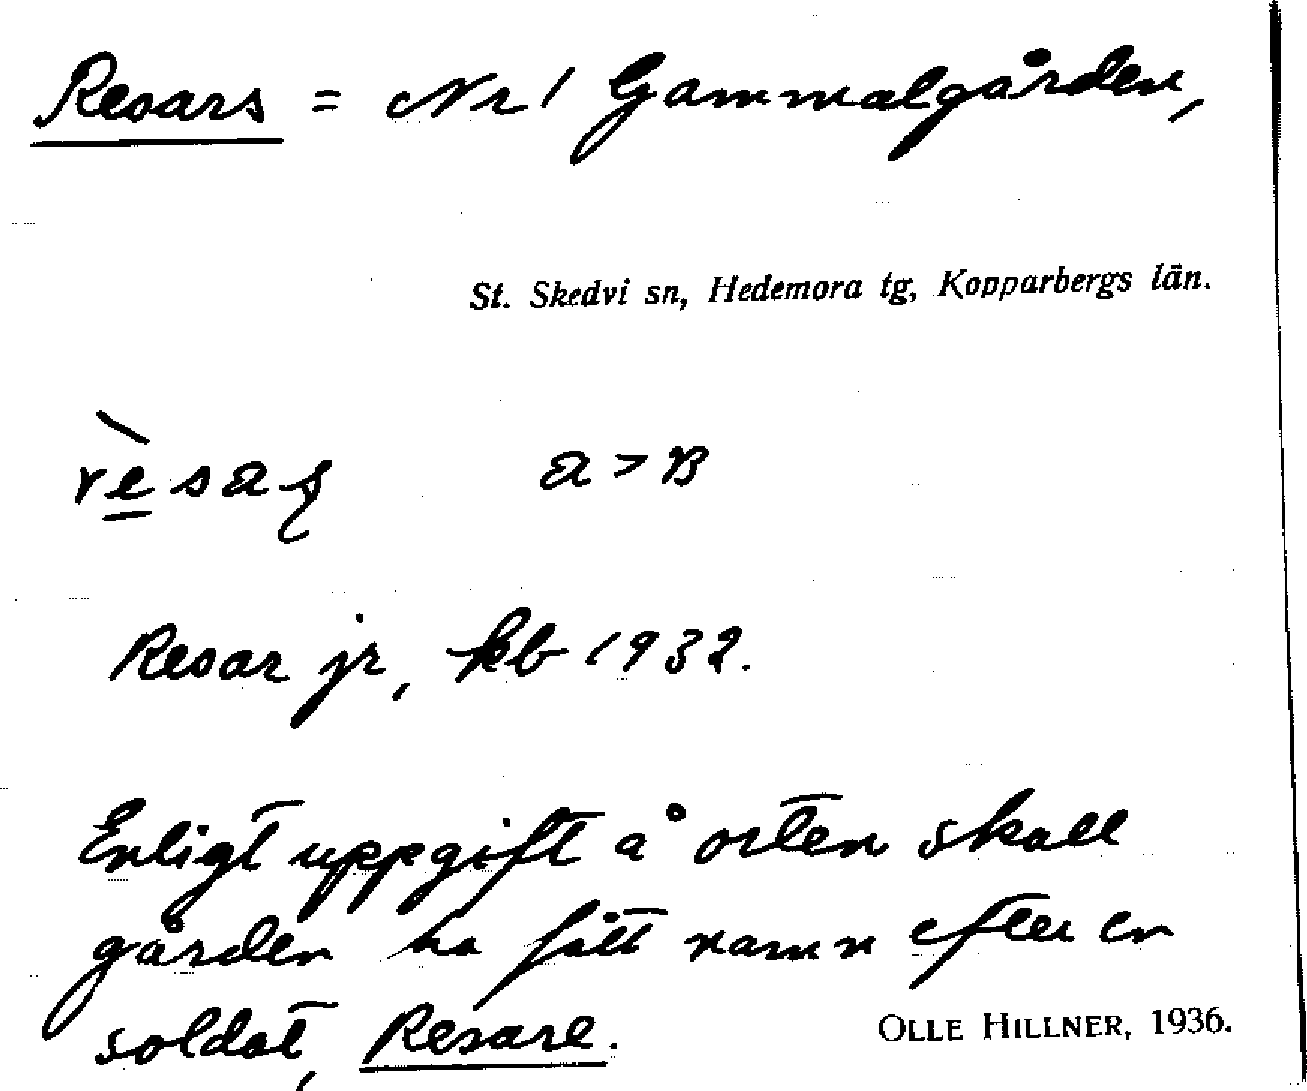 Resars = Nr 1 Gammalgården,
St. Skedvi sn, Hedemora tg, Kopparbergs län.
rèsaʂ a > B
Resar jr, kb 1932.
Enligt uppgift å orten skall
gården ha fått namn efter en
soldat, Resare.
OLLE HILLNER, 1936.